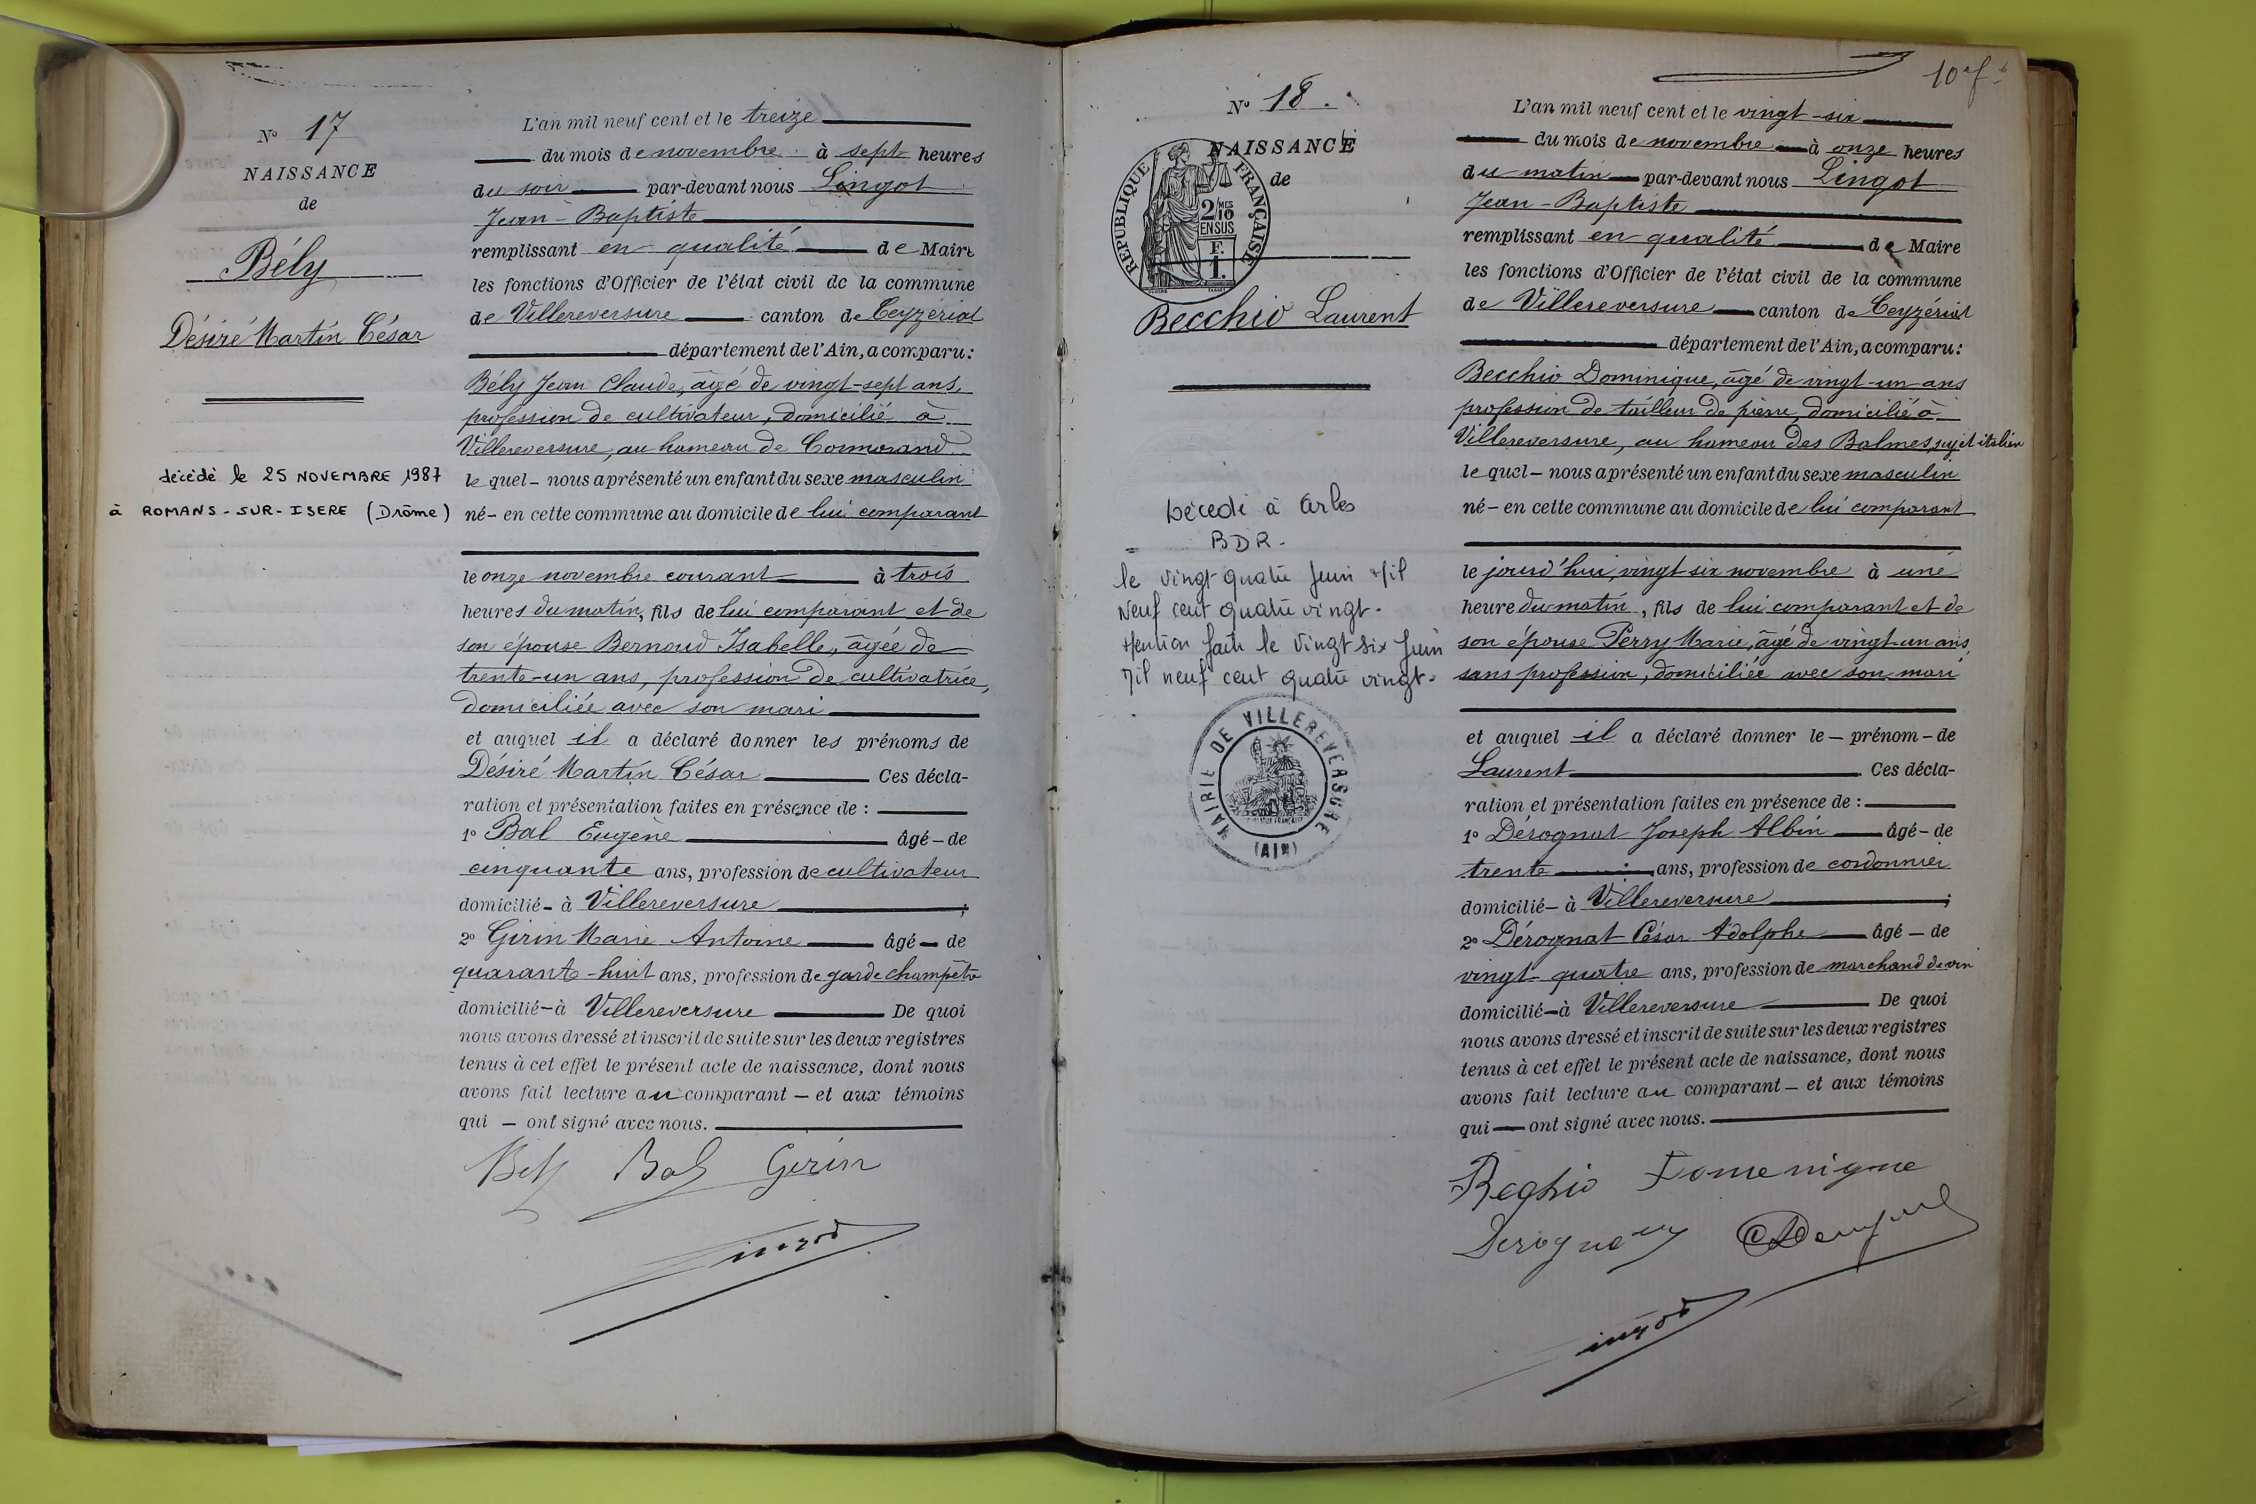 N° 17
NAISSANCE
de
Bély
Désiré Martin César
décédé le 25 NOVEMBRE 1987
à ROMANS-SUR-ISERE (Drôme)
L'an mil neuf cent et le treize
du mois de novembre à sept heures
du soir par-devant nous Lingot
Jean-Baptiste
remplissant en qualité de Maire
les fonctions d'Officier de l'état civil de la commune
de Villereversure canton de Ceyzériat
département de l'Ain, a comparu:
Bély Jean Claude, âgé de vingt-sept ans,
profession de cultivateur, domicilié à
Villereversure, au hameau de Cormorand
le quel - nous a présenté un enfant du sexe masculin
né - en cette commune au domicile de lui comparant
le onze novembre courant à trois
heures du matin, fils de lui comparant et de
son épouse Bernoud Isabelle, âgée de
trente-un ans, profession de cultivatrice,
domiciliée avec son mari
et auquel il a déclaré donner les prénoms de
Désiré Martin César Ces décla-
ration et présentation faites en présence de :
1° Bal Eugène âgé - de
cinquante ans, profession de cultivateur
domicilié - à Villereversure ;
2° Girin Marie Antoine âgé - de
quarante-huit ans, profession de garde champêtre
domicilié - à Villereversure De quoi
nous avons dressé et inscrit de suite sur les deux registres
tenus à cet effet le présent acte de naissance, dont nous
avons fait lecture au comparant - et aux témoins
qui - ont signé avec nous.
Bély Bal Girin
Lingot
10e f.
N° 18.
NAISSANCE
de
REPUBLIQUE FRANÇAISE
2/10 MES
EN SUS
F.
1.
Becchio Laurent
Décédé à Arles
BDR.
le vingt quatre Juin Mil
Neuf cent quatre vingt.
Mention faite le Vingt six Juin
Mil neuf cent quatre vingt.
MAIRIE DE VILLEREVERSURE
(AIN)
L'an mil neuf cent et le vingt-six
du mois de novembre à onze heures
du matin par-devant nous Lingot
Jean-Baptiste
remplissant en qualité de Maire
les fonctions d'Officier de l'état civil de la commune
de Villereversure canton de Ceyzériat
département de l'Ain, a comparu:
Becchio Dominique, âgé de vingt-un ans
profession de tailleur de pierre, domicilié à
Villereversure, au hameau des Balmes, sujet italien
le quel - nous a présenté un enfant du sexe masculin
né - en cette commune au domicile de lui comparant
le jourd'hui, vingt six novembre à une
heure du matin, fils de lui comparant et de
son épouse Perry Marie, âgé de vingt-un ans,
sans profession, domiciliée avec son mari
et auquel il a déclaré donner le - prénom - de
Laurent Ces décla-
ration et présentation faites en présence de :
1° Dérognat Joseph Albin âgé - de
trente ans, profession de cordonnier
domicilié - à Villereversure ;
2° Dérognat César Adolphe âgé - de
vingt-quatre ans, profession de marchand de vin
domicilié - à Villereversure De quoi
nous avons dressé et inscrit de suite sur les deux registres
tenus à cet effet le présent acte de naissance, dont nous
avons fait lecture au comparant - et aux témoins
qui - ont signé avec nous.
Beghio Domenigue
Derognat
Lingot